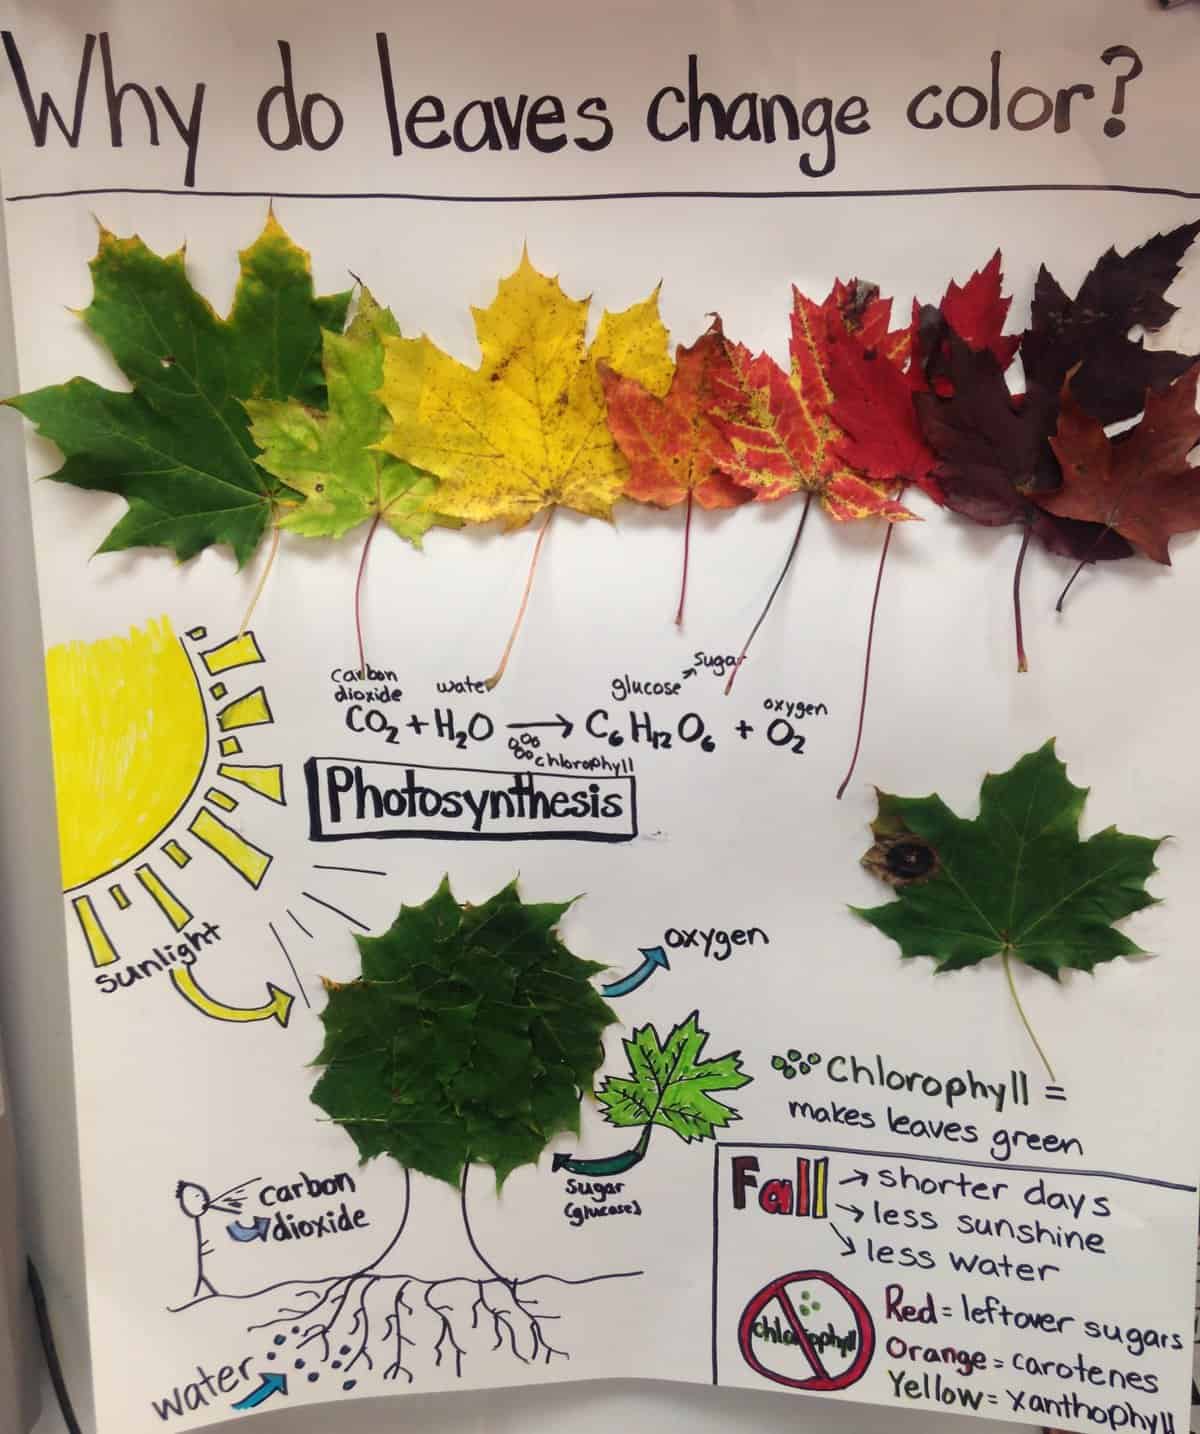 Why do leaves change color?
carbon dioxide
water
glucose → sugar
oxygen
CO₂ + H₂O → C₆H₁₂O₆ + O₂
chlorophyll
Photosynthesis
sunlight
oxygen
Chlorophyll =
makes leaves green
carbon
dioxide
sugar
(glucose)
water
Fall → shorter days
→ less sunshine
→ less water
chlorophyll
Red = leftover sugars
Orange = carotenes
Yellow = Xanthophyll